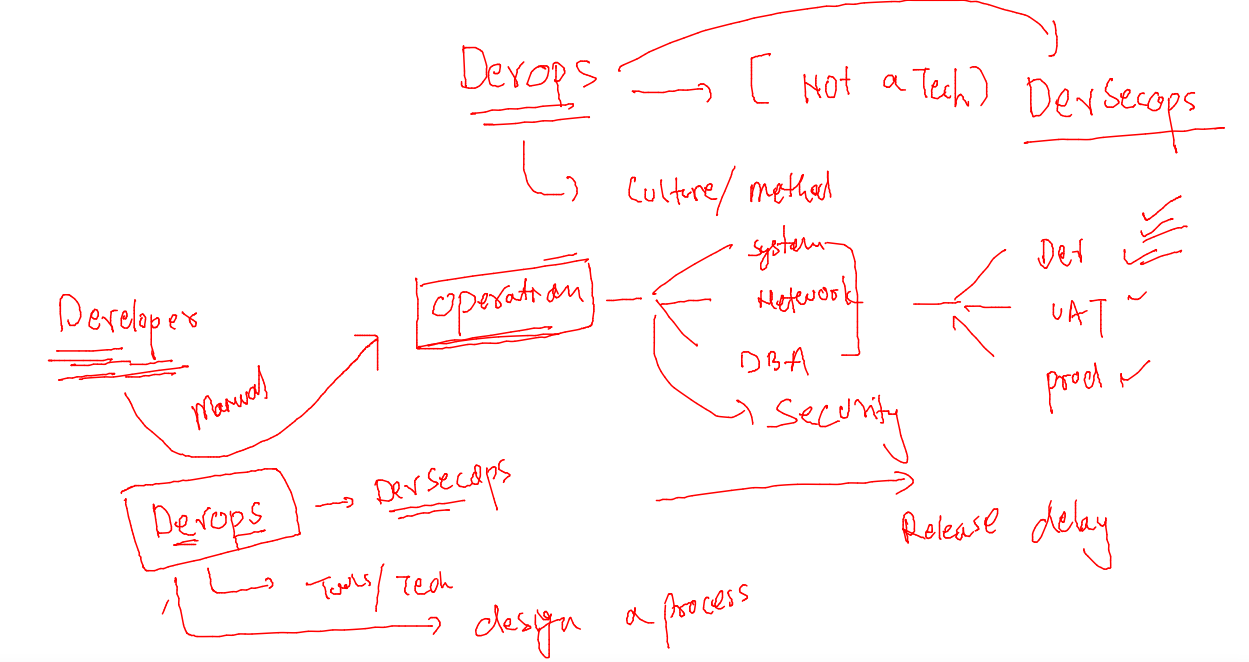 Devops
[ Not a Tech )
DevSecops
Culture/ method
Developer
Manual
Operation
system
Network
DBA
Security
Dev
UAT
prod
Devops
DevSecops
Tools/Tech
design a process
Release delay